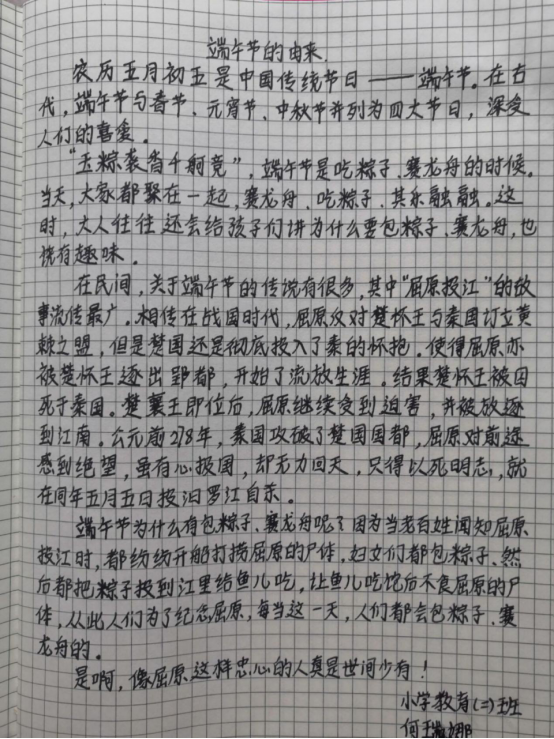 端午节的由来.
农历五月初五是中国传统节日——端午节。在古
代，端午节与春节、元宵节、中秋节并列为四大节日，深受
人们的喜爱。
"玉粽袭香千舸竞"，端午节是吃粽子、赛龙舟的时候。
当天，大家都聚在一起，赛龙舟、吃粽子、其乐融融。这
时，大人往往还会给孩子们讲为什么要包粽子、赛龙舟，也
挺有趣味。
在民间，关于端午节的传说有很多，其中"屈原投江"的故
事流传最广。相传在战国时代，屈原反对楚怀王与秦国订立黄
棘之盟，但是楚国还是彻底投入了秦的怀抱。使得屈原亦
被楚怀王逐出郢都，开始了流放生涯。结果楚怀王被囚
死于秦国。楚襄王即位后，屈原继续受到迫害，并被放逐
到江南。公元前278年，秦国攻破了楚国国都，屈原对前途
感到绝望，虽有心报国，却无力回天，只得以死明志，就
在同年五月五日投汨罗江自杀。
端午节为什么有包粽子、赛龙舟呢？因为当老百姓闻知屈原
投江时，都纷纷开船打捞屈原的尸体，妇女们都包粽子、然
后都把粽子投到江里给鱼儿吃，让鱼儿吃饱后不食屈原的尸
体，从此人们为了纪念屈原，每当这一天，人们都会包粽子、赛
龙舟的。
是啊，像屈原这样忠心的人真是世间少有！
小学教育(二)班
何瑞娜